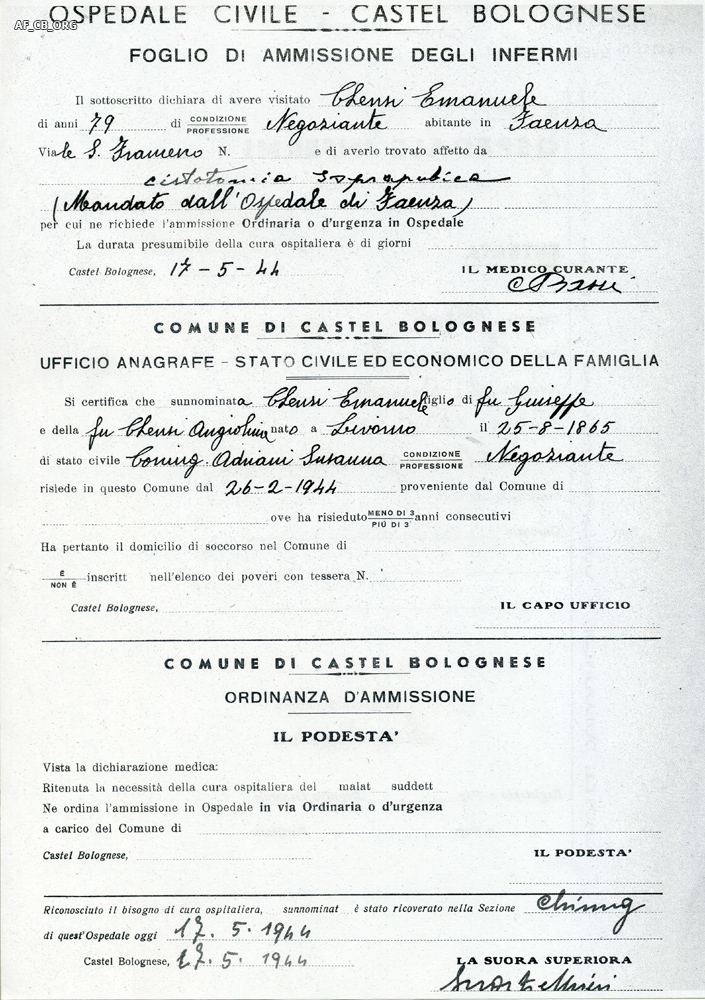 OSPEDALE CIVILE - CASTEL BOLOGNESE
AF_CB_ORG
FOGLIO DI AMMISSIONE DEGLI INFERMI
Il sottoscritto dichiara di avere visitato Chensi Emanuele
di anni 79 di CONDIZIONE PROFESSIONE Negoziante abitante in Faenza
Viale S. N. e di averlo trovato affetto da
cistotomia soprapubica
(Mandato dall'Ospedale di Faenza)
per cui ne richiede l'ammissione Ordinaria o d'urgenza in Ospedale
La durata presumibile della cura ospitaliera è di giorni
Castel Bolognese, 17-5-44 IL MEDICO CURANTE
COMUNE DI CASTEL BOLOGNESE
UFFICIO ANAGRAFE - STATO CIVILE ED ECONOMICO DELLA FAMIGLIA
Si certifica che sunnominata Chensi Emanuele figlio di fu Guiseppe
e della fu Chensi Angiolina nato a Livorno il 25-8-1865
di stato civile Coniug. Adriani Susanna CONDIZIONE PROFESSIONE Negoziante
risiede in questo Comune dal 26-2-1944 proveniente dal Comune di
ove ha risieduto MENO DI 3 PIÚ DI 3 anni consecutivi
Ha pertanto il domicilio di soccorso nel Comune di
È NON È inscritt nell'elenco dei poveri con tessera N.
Castel Bolognese, IL CAPO UFFICIO
COMUNE DI CASTEL BOLOGNESE
ORDINANZA D'AMMISSIONE
IL PODESTA'
Vista la dichiarazione medica:
Ritenuta la necessità della cura ospitaliera del malat suddett
Ne ordina l'ammissione in Ospedale in via Ordinaria o d'urgenza
a carico del Comune di
Castel Bolognese, IL PODESTA'
Riconosciuto il bisogno di cura ospitaliera, sunnominat è stato ricoverato nella Sezione Chirurg
di quest'Ospedale oggi 17.5.1944
Castel Bolognese, 17.5.1944 LA SUORA SUPERIORA